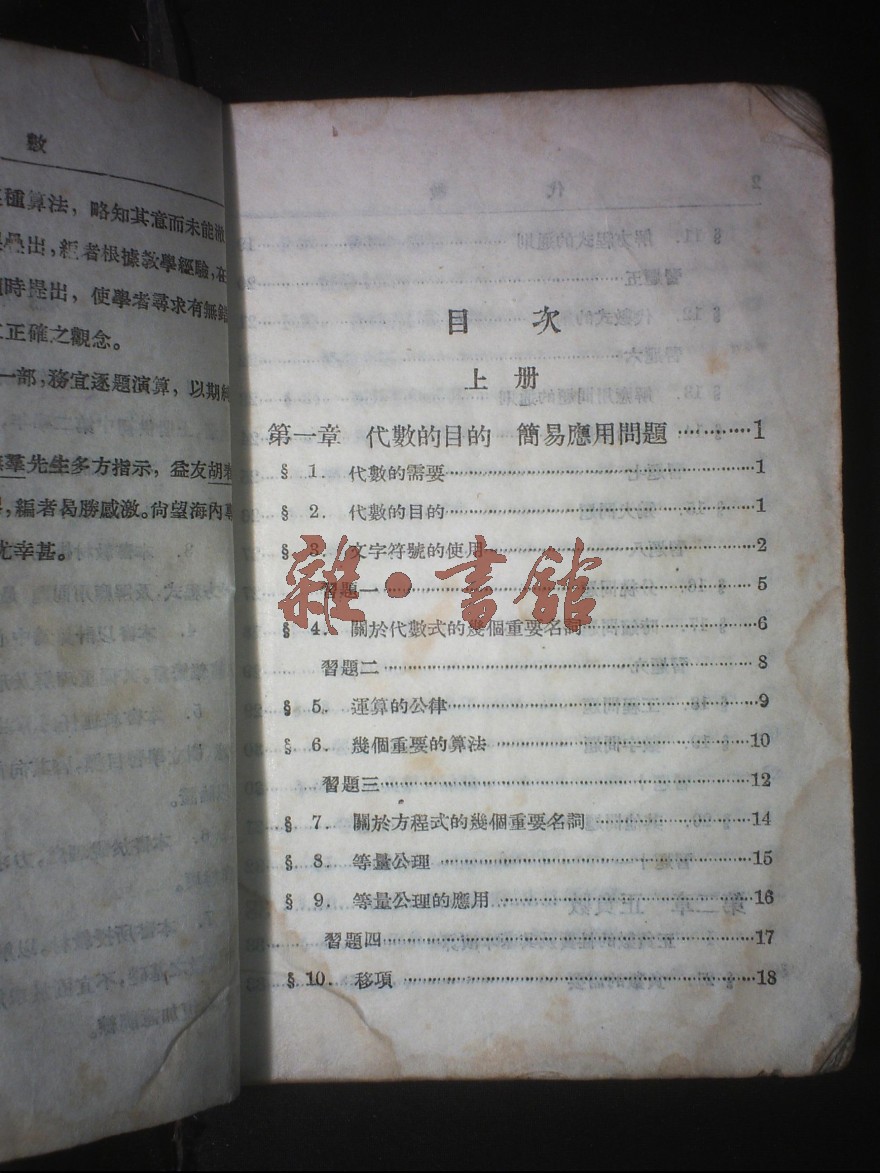 數
種算法，略知其意而未能澈
疊出，經者根據敎學經驗，在
時提出，使學者尋求有無錯
正確之觀念。
一部，務宜逐題演算，以期純
羣先生多方指示，益友胡
，編者曷勝感激。尙望海內專
尤幸甚。
目 次
上 册
第一章 代數的目的 簡易應用問題 …………1
§ 1. 代數的需要……………………1
§ 2. 代數的目的……………………1
§ 3. 文字符號的使用……………………2
習題一……………………5
§ 4. 關於代數式的幾個重要名詞……………………6
習題二……………………8
§ 5. 運算的公律……………………9
§ 6. 幾個重要的算法……………………10
習題三……………………12
§ 7. 關於方程式的幾個重要名詞……………………14
§ 8. 等量公理……………………15
§ 9. 等量公理的應用……………………16
習題四……………………17
§ 10. 移項……………………18
雜·書館